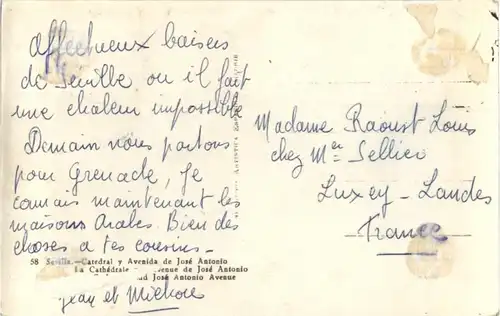 Affectueux baisers
de Seville ou il fait
une chaleur impossible
Demain nous partons
pour Grenade, Je
connais maintenant les
maisons Arabes. Bien des
choses a tes cousins -
58 Sevilla.—Catedral y Avenida de José Antonio
La Cathédrale venue de José Antonio
nd José Antonio Avenue
Jean et
Madame Raoust Louis
chez Mer Sellier
Luxey - Landes
France